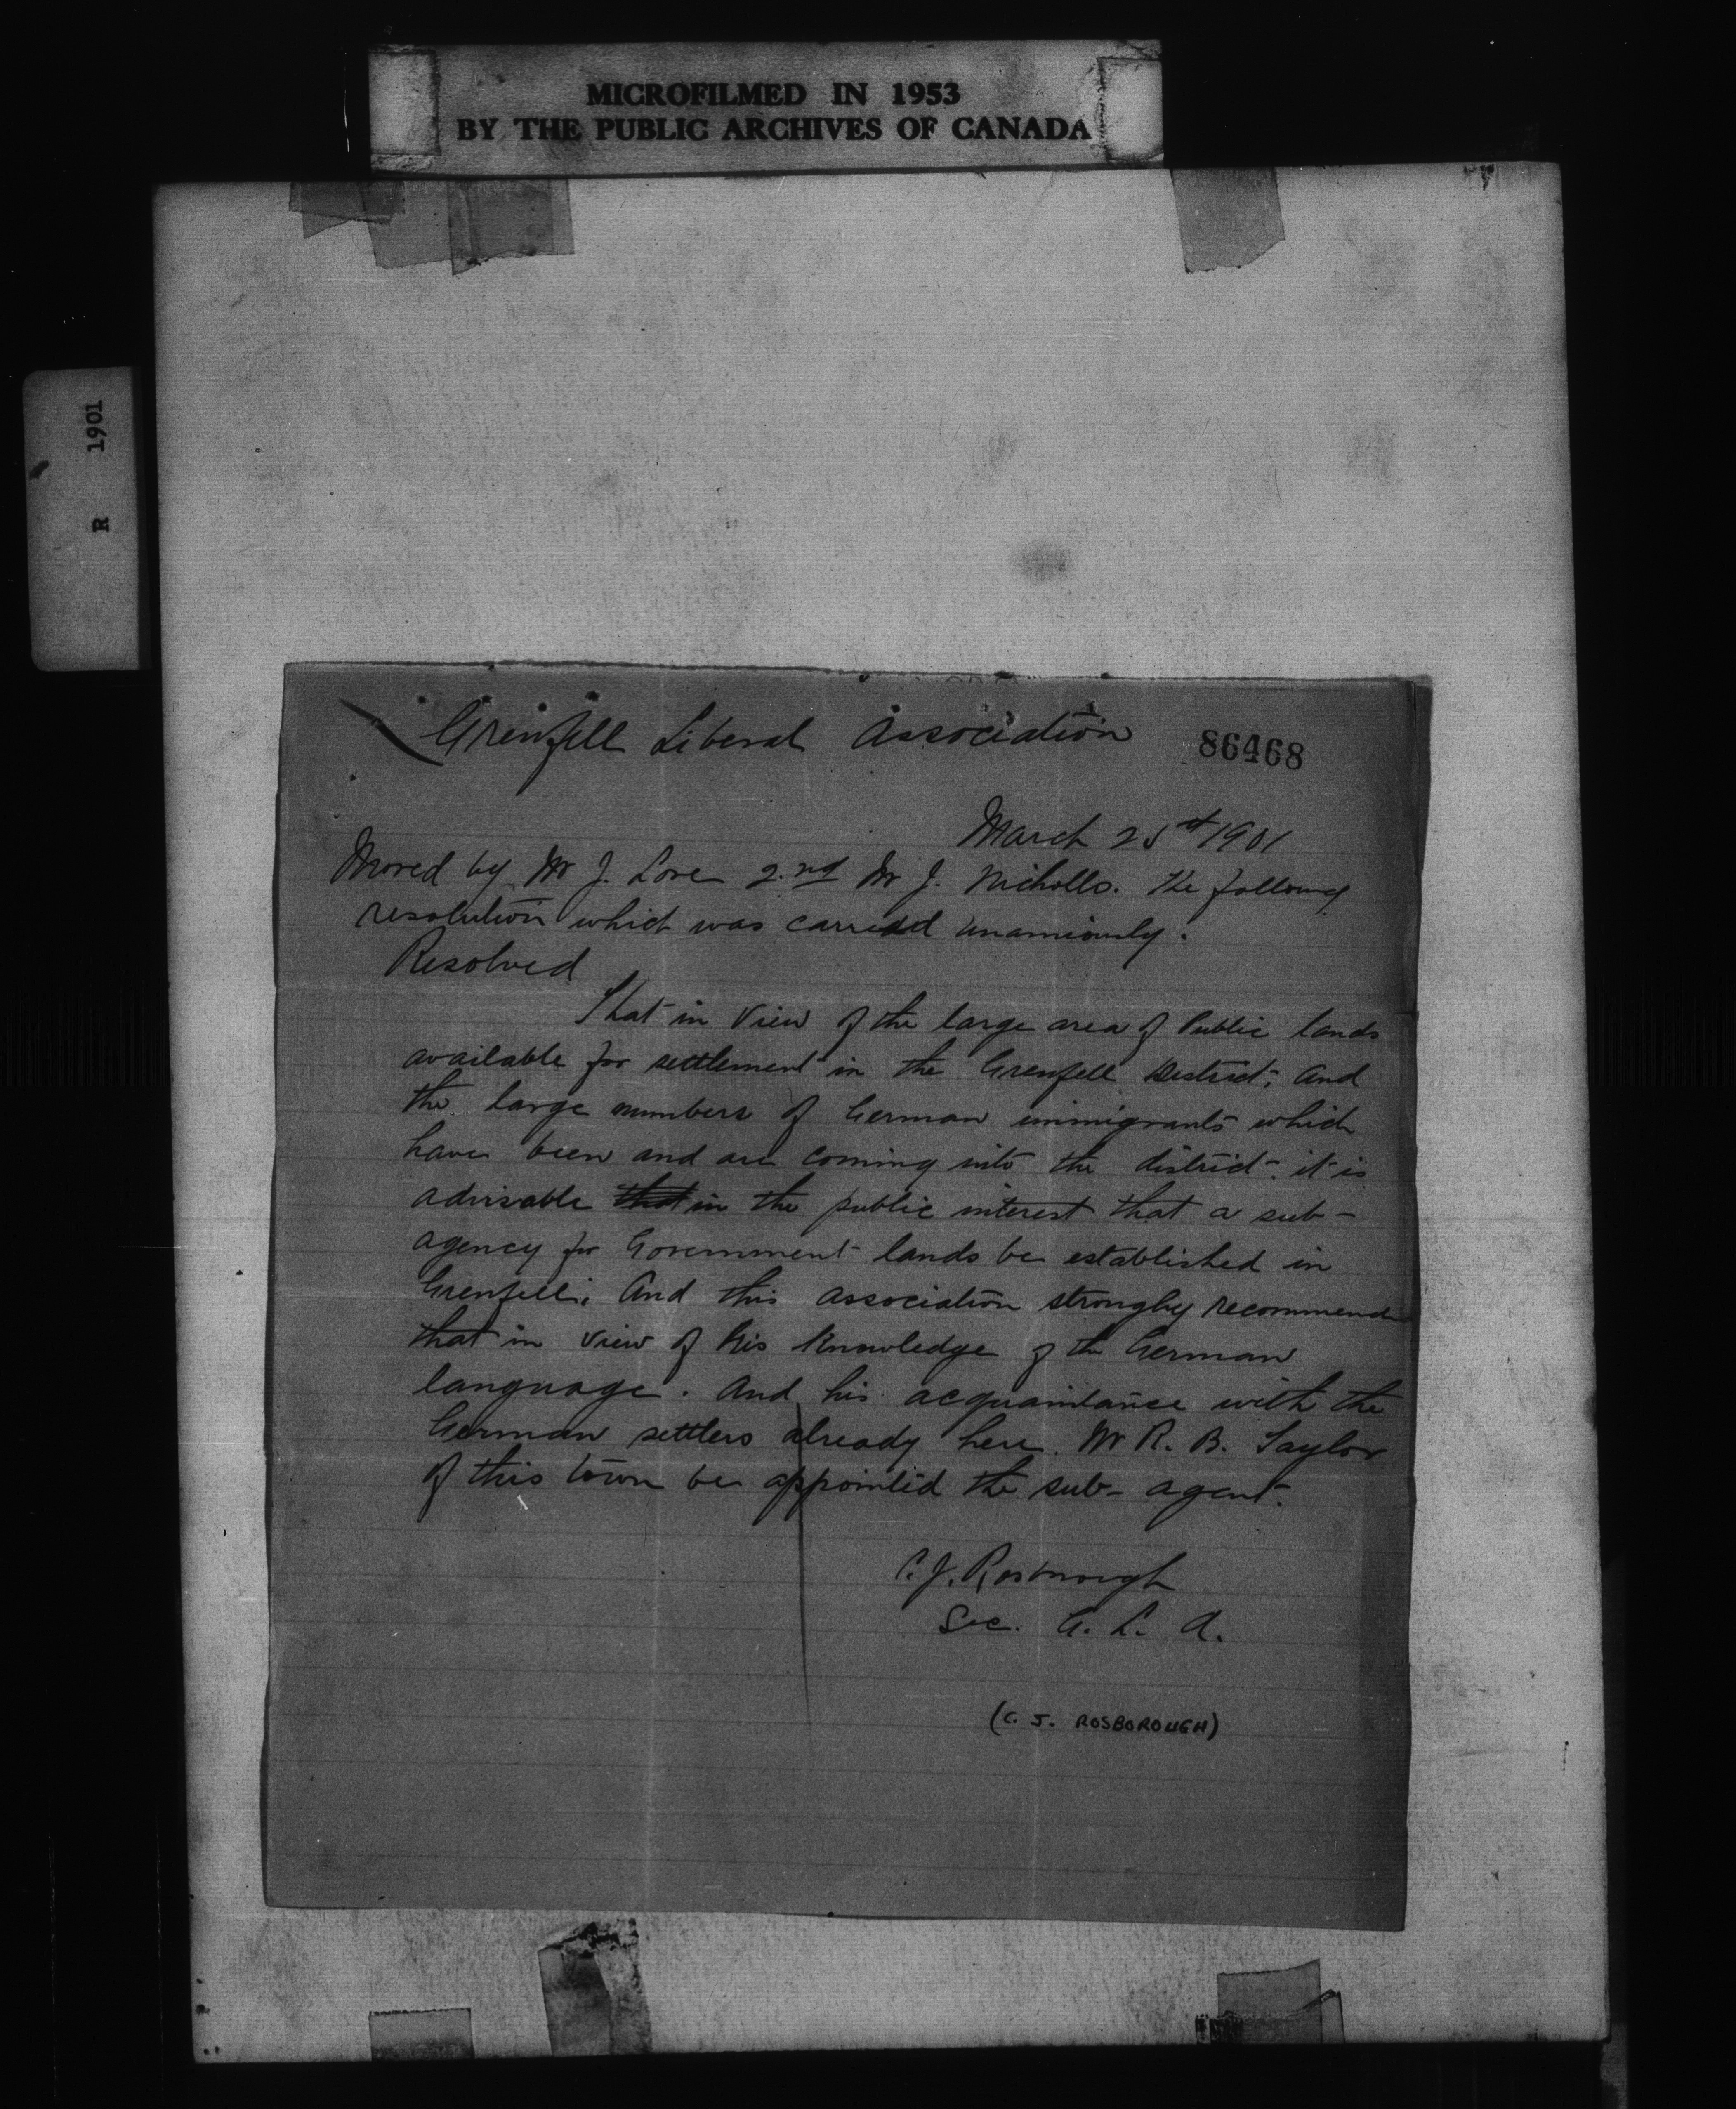 MICROFILMED IN 1953
BY THE PUBLIC ARCHIVES OF CANADA
R 1901
Grenfell Liberal Association 86468
March 25st 1901
Moved by Mr J. Love 2.nd Mr J. Nicholls. The following
resolution which was carried unamiously.
Resolved
That in view of the large area of Public lands
available for settlement in the Grenfell District; And
the large numbers of German immigrants which
have been and are coming into the district. it is
advisable that in the public interest that a sub-
agency for Government lands be established in
Grenfell; And this association strongly recommend
that in view of his knowledge of the German
language. And his acquaintance with the
German settlers already here. Mr R. B. Taylor
of this town be appointed the sub-agent.
C. J. Rosborough
Sec. G. L. A.
(C. J. ROSBOROUGH)